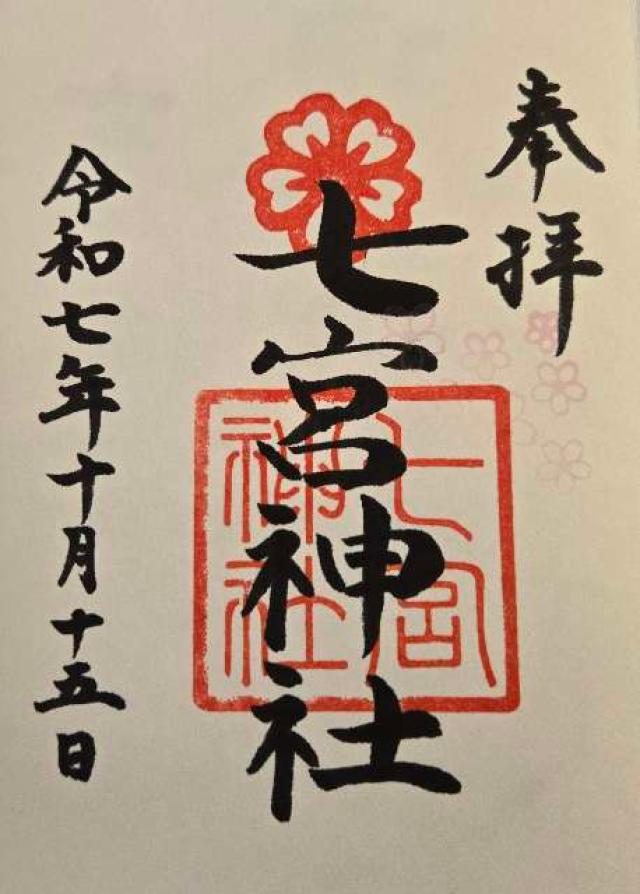 奉拝
七宮神社
七宮
神社
令和七年十月十五日